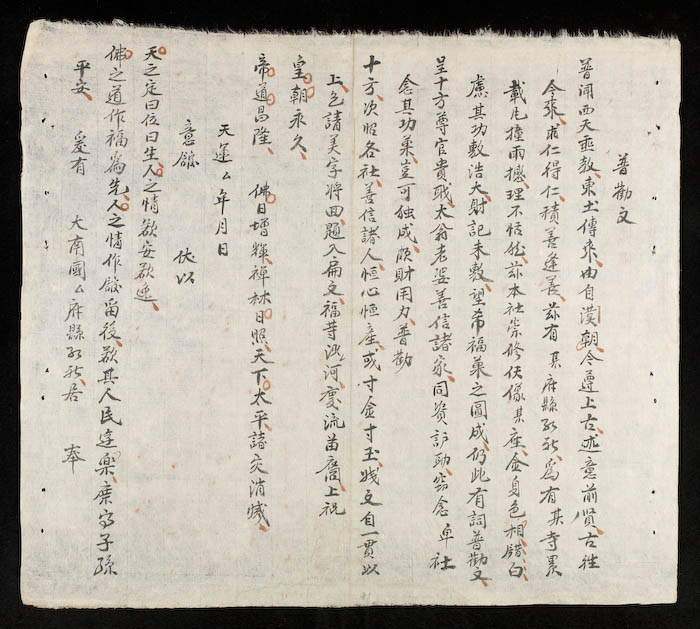 普勸文
普闻西天乘教東土傳來由自漢朝令遵上古述意前贤古往
今張求仁得仁積善逢善茲有某府縣總社為有某寺累
載風撞雨撼理不恆然茲本社崇修伏像某座金身色相錯白
慮其功敷浩大財記未敷望希福菓之圓成仍此有詞普勸文
呈十方尊官貴戢太翁老婆善信諸家同資訪助窃念卑社
念其功菓豈可独成頗財用力普勸
十方次照各社善信諸人恒心恒產或寸金寸玉錢文自一貫以
上乞請美字將回題入扁文福等河慶流苗裔上祝
皇朝永久
帝道昌隆 佛日增輝禅林日照天下太平諸灾消滅
天運厶年月日
意 伏以
天之定曰位曰生人之情欲安欲逸
佛之道作福為先人之情作留後欲其人民逹樂康寧子孫
平安 爰有 大南國厶府縣總社居 奉